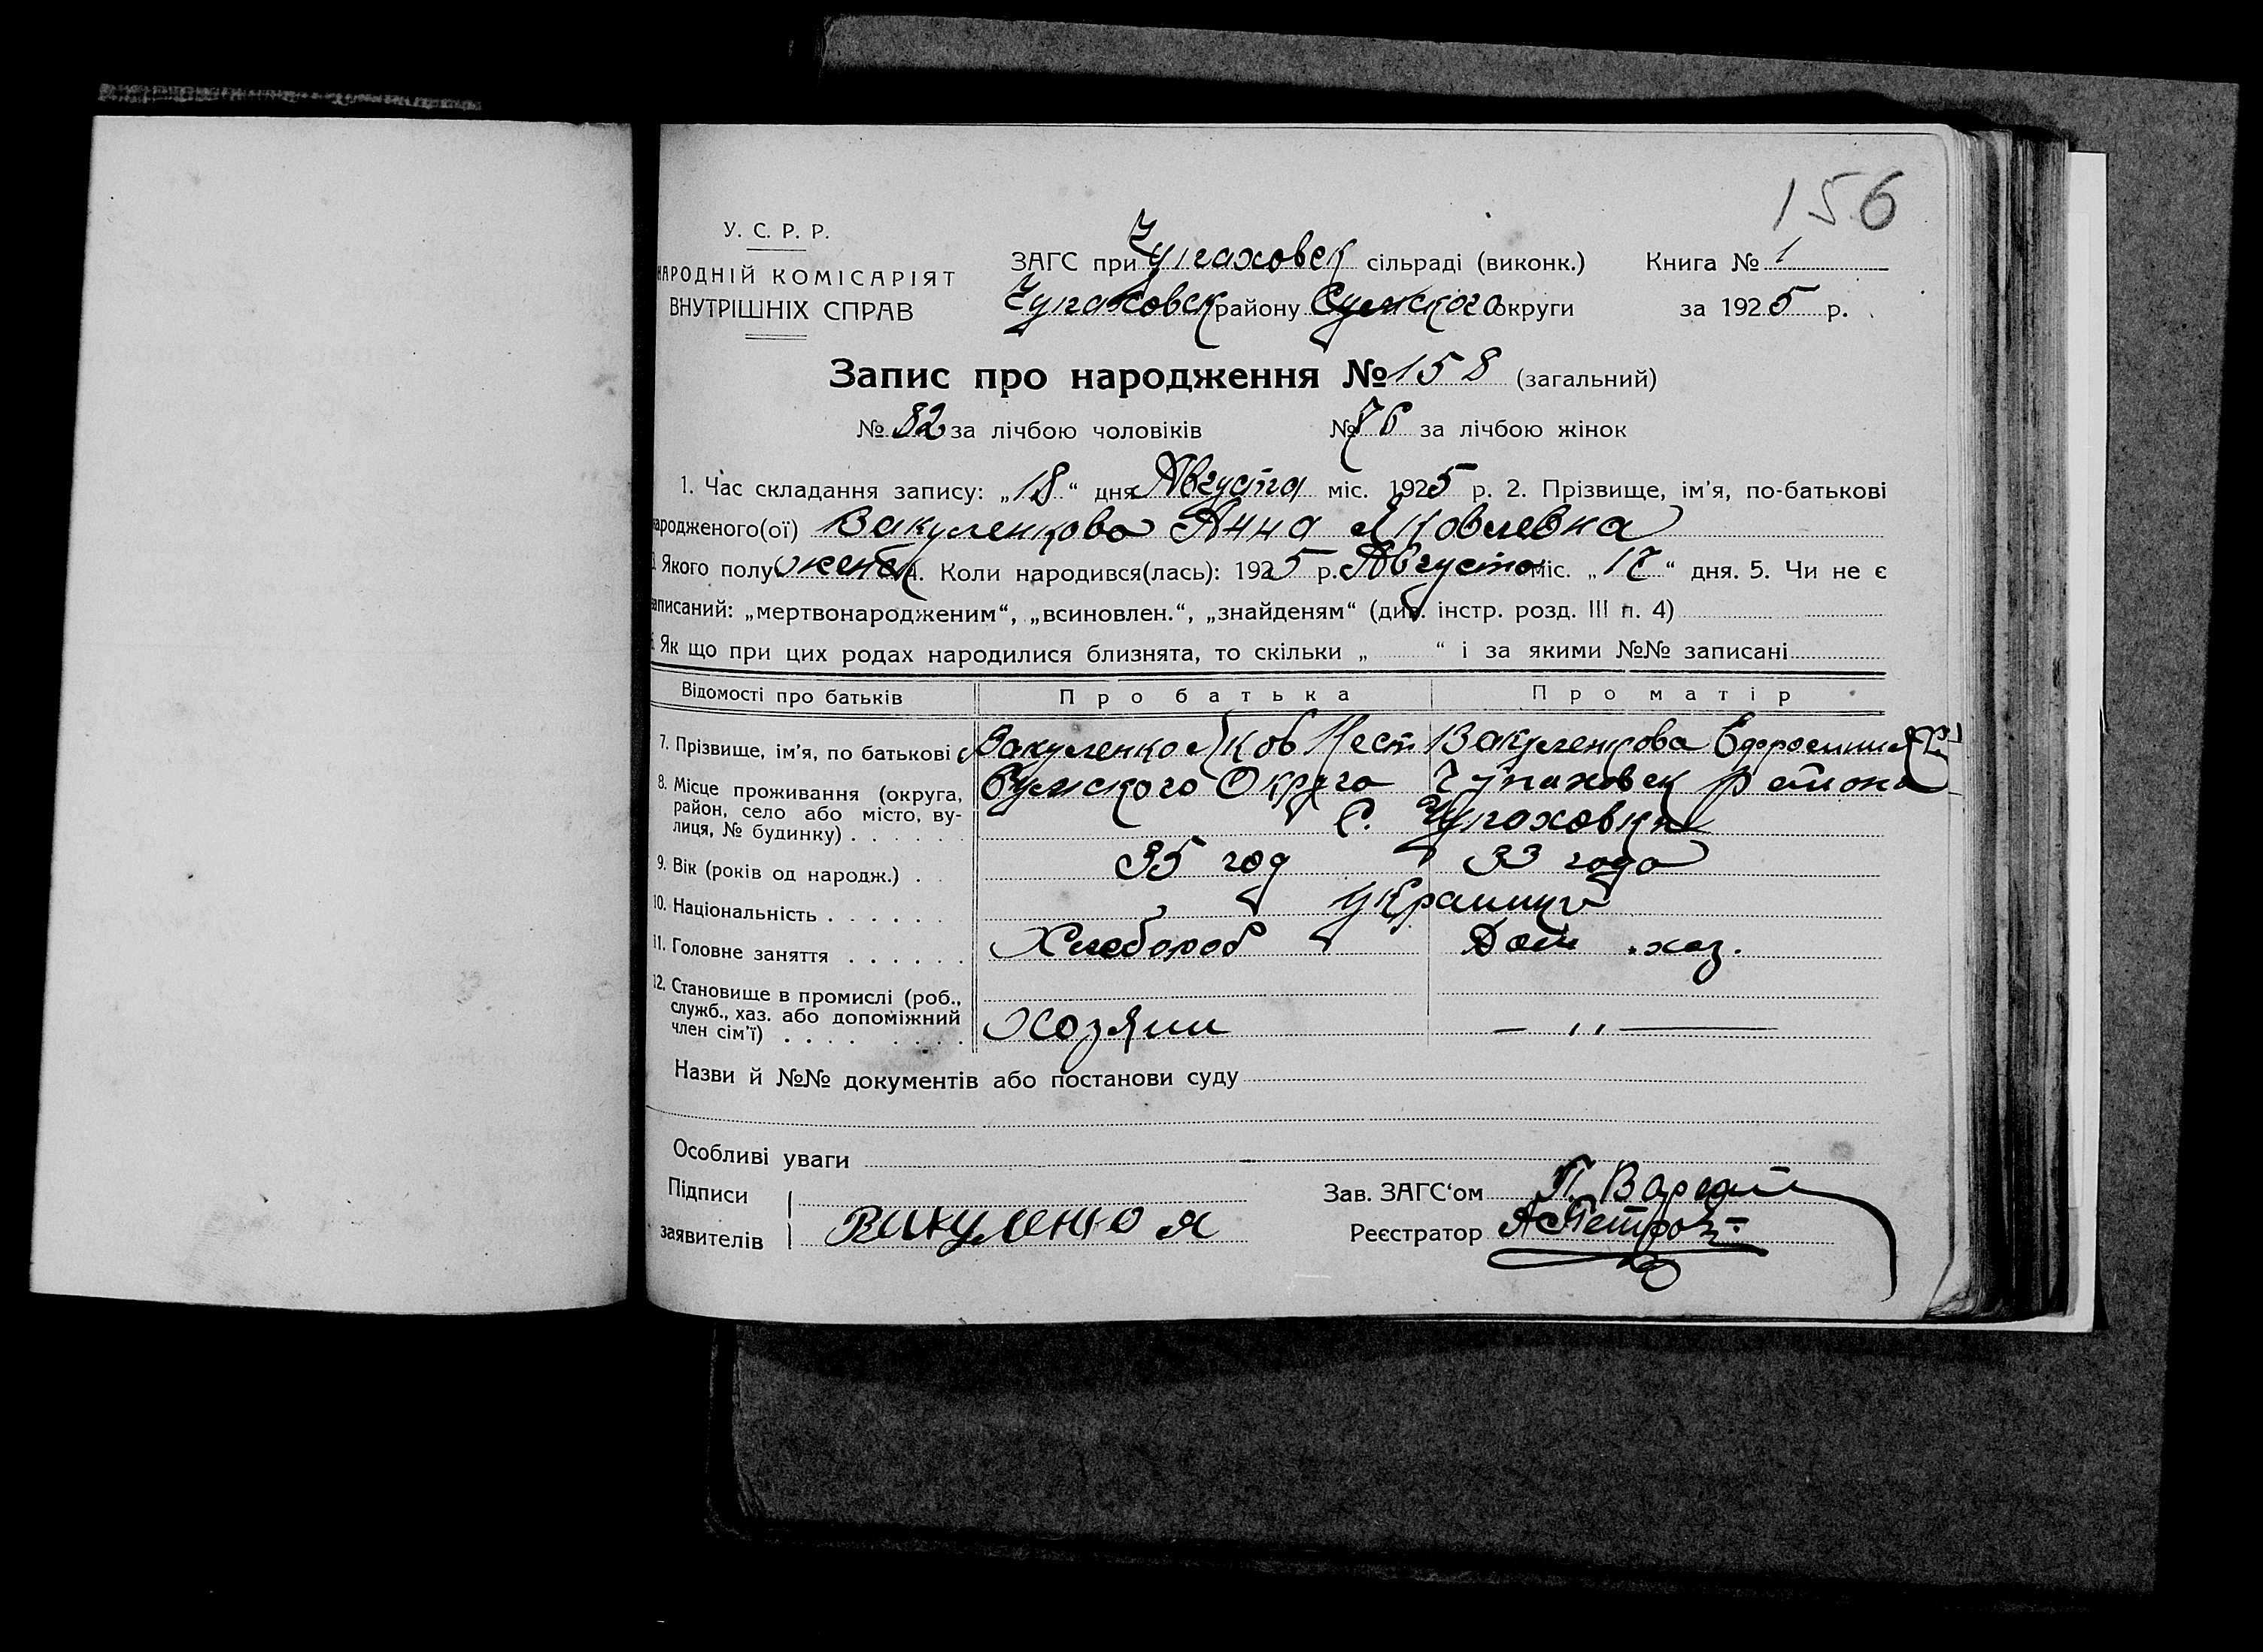 156
У. С. Р. Р.
НАРОДНІЙ КОМІСАРІЯТ
ВНУТРІШНІХ СПРАВ
ЗАГС при Чупаховск сільраді (виконк.) Книга № 1
Чупаховск району Сумского округи за 1925 р.
Запис про народження № 158 (загальний)
№ 82 за лічбою чоловіків № 76 за лічбою жінок
1. Час складання запису: „18“ дня Августа міс. 1925 р. 2. Прізвище, ім’я, по-батькові
народженого(ої) Вакуленкова Анна Яковлевна
Якого полу женск 4. Коли народився(лась): 1925 р. Августа міс. „17“ дня. 5. Чи не є
записаний: „мертвонародженим“, „всиновлен.“, „знайденям“ (див. інстр. розд. III п. 4)
Як що при цих родах народилися близнята, то скільки „ “ і за якими №№ записані
Відомості про батьків Про батька Про матір
7. Прізвище, ім’я, по батькові Вакуленко Яков Нест Вакуленкова Ефросиния
8. Місце проживання (округа, Сумского Округа Чупаховск района
район, село або місто, ву- с. Чупаховки
лиця, № будинку) . . . . .
9. Вік (років од народж.) . 35 год 33 года
10. Національність . . . . . . украинц
11. Головне заняття . . . . . . Хлебороб Дом. хаз.
12. Становище в промислі (роб.,
служб., хаз. або допоміжний
член сім’ї) . . . . . . . . Хозяин — „ —
Назви й №№ документів або постанови суду
Особливі уваги
Підписи Зав. ЗАГС‘ом П.
заявителів Вакуленко Я Реєстратор АПетров